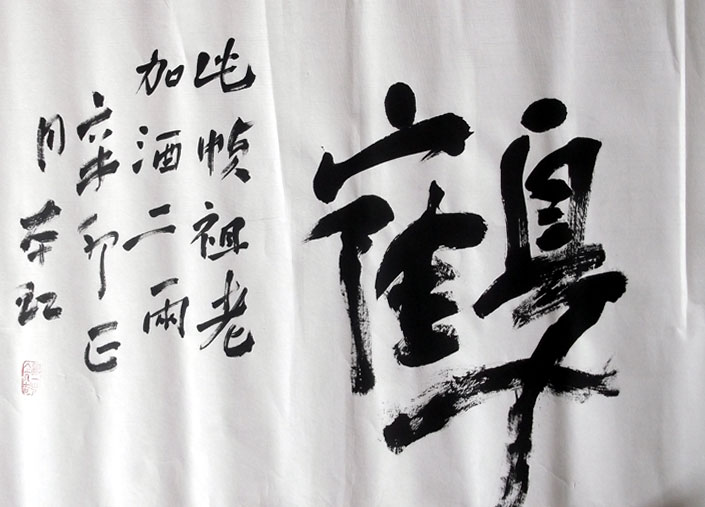 鶴
此幀祖老
加酒二兩
辛卯正
月